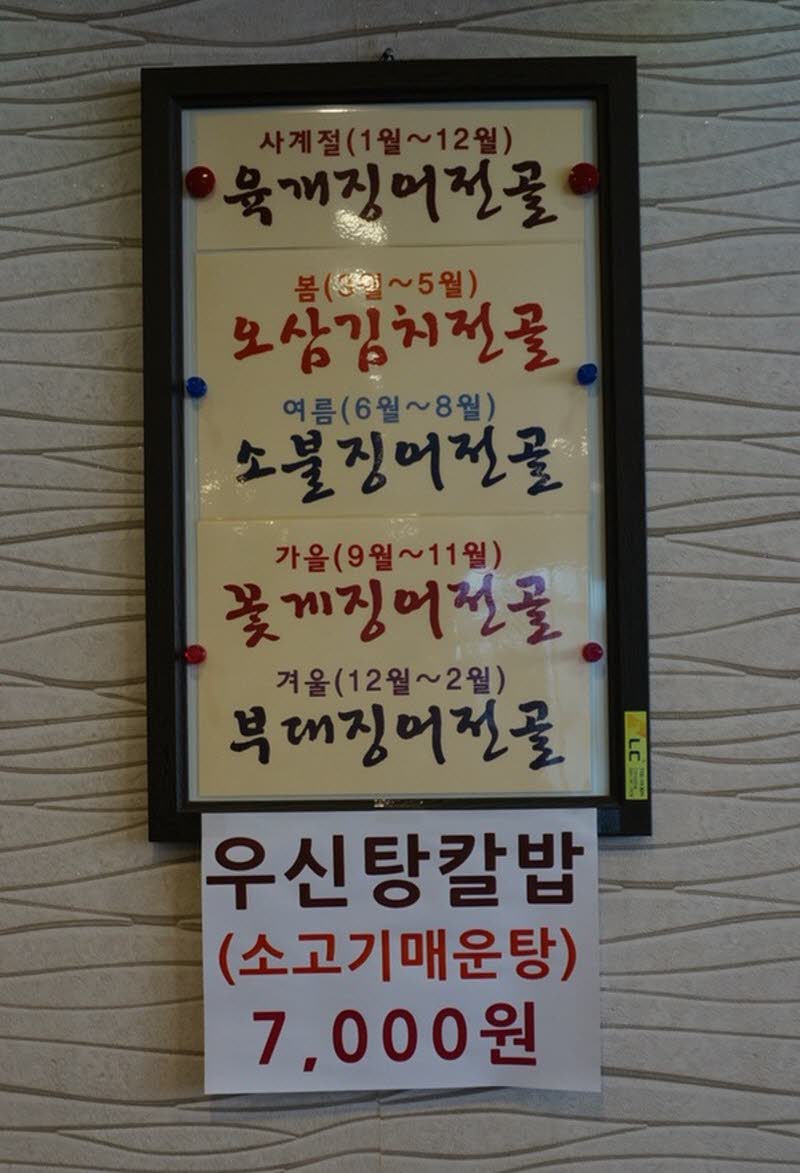 사계절(1월~12월)
육개징어전골
봄(3월~5월)
오삼김치전골
여름(6월~8월)
소불징어전골
가을(9월~11월)
꽃게징어전골
겨울(12월~2월)
부대징어전골
LC
우신탕칼밥
(소고기매운탕)
7,000원